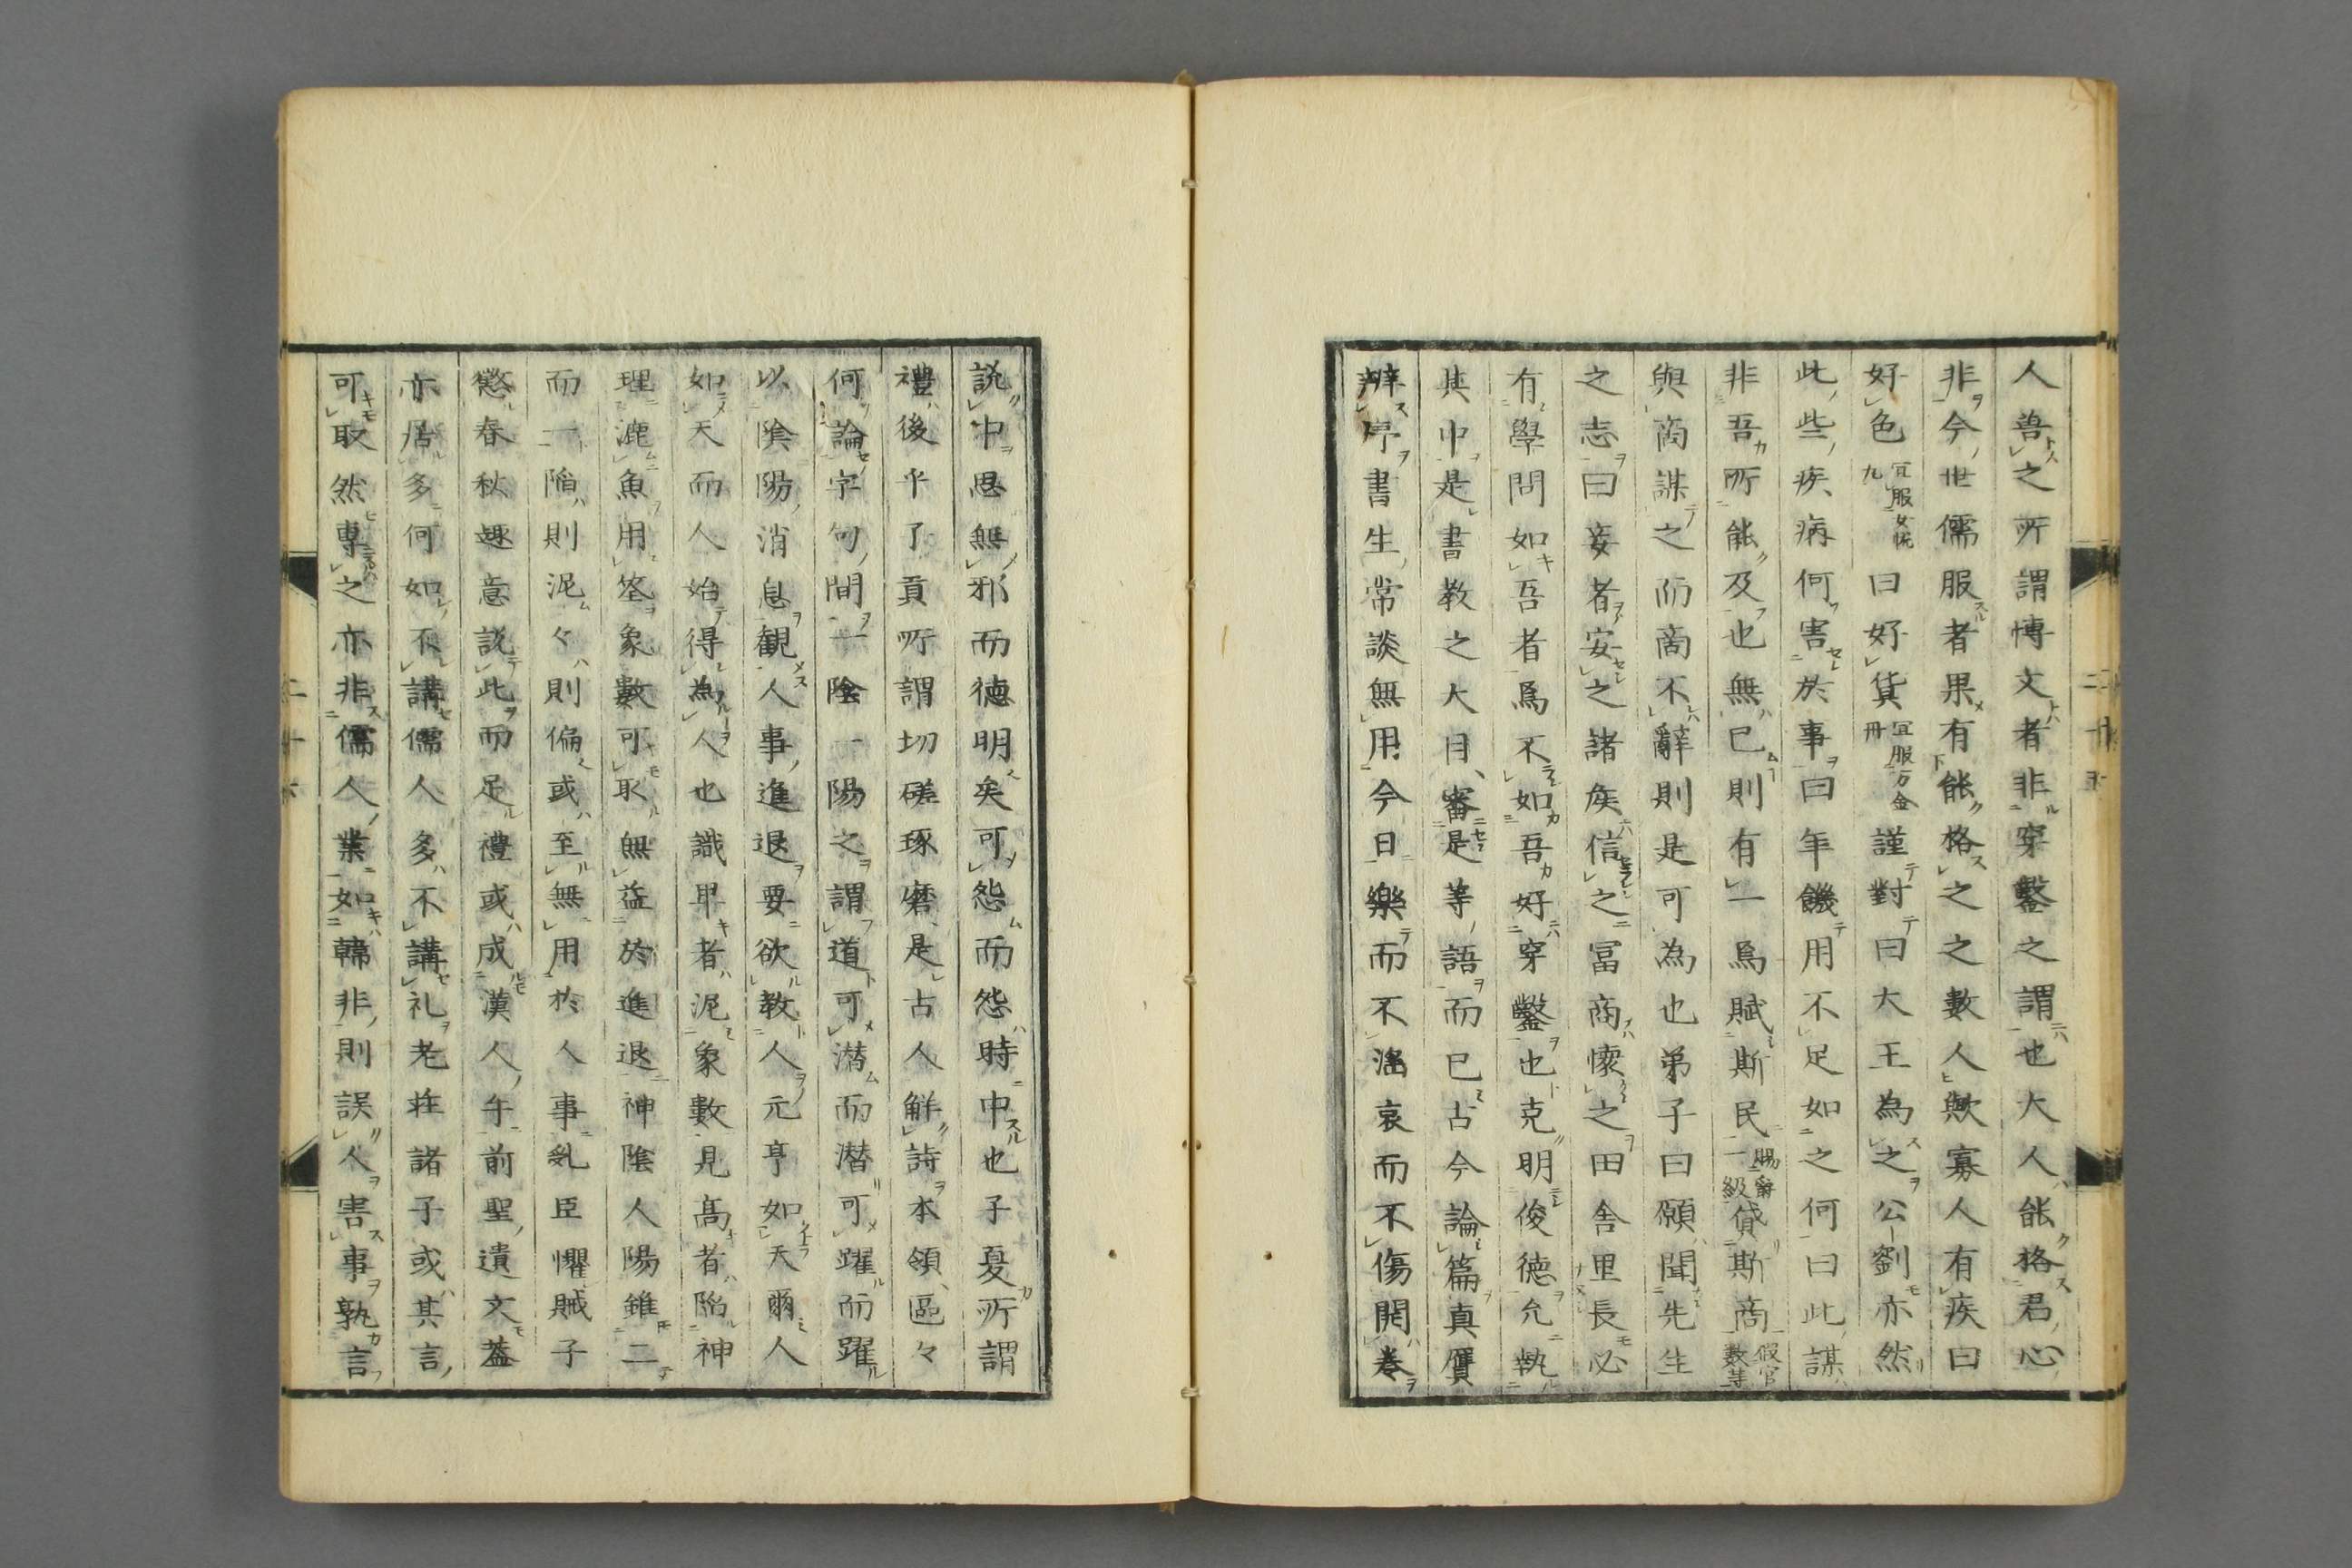 人善之所謂博文者非穿鑿之謂也大人能格君心
非今世儒服者果有能格之之數人歟寡人有疾曰
好色冝服女悦九曰好貨冝服万金冊謹對曰大王為之公劉亦然
此些疾病何害於事曰年饑用不足如之何曰此謀
非吾所能及也無已則有一焉賦斯民賜爵一級貸斯商假官数等
與商謀之而商不辭則是可為也弟子曰願聞先生
之志曰妄者安之諸矦信之冨商懷之田舎里長必
有學問如吾者焉不如吾好穿鑿也克明俊徳允執
其中是書教之大目審是等語而已古今論篇真贋
辨序書生常談無用今日樂而不滛哀而不傷開卷
説中思無邪而徳明矣可怨而怨時中也子夏所謂
禮後乎了貢所謂切磋琢磨是占人觧詩本領區々
何論字句間一陰一陽之謂道可潜而潜可躍而躍
以陰陽消息観人事進退要欲教人元亨如天爾人
如天而人始得為人也識卑者泥象數見髙者陷神
理漉魚用筌象數可取無益於進退神陰人陽錐二
而一陷則泥々則偏或至無用於人事乱臣懼賊子
懲春秋趣意説此而足禮或成漢人午前聖遺文葢
亦居多何如不講儒人多不講礼老荘諸子或其言
可取然專之亦非儒人業如韓非則誤人害事孰言
二十六